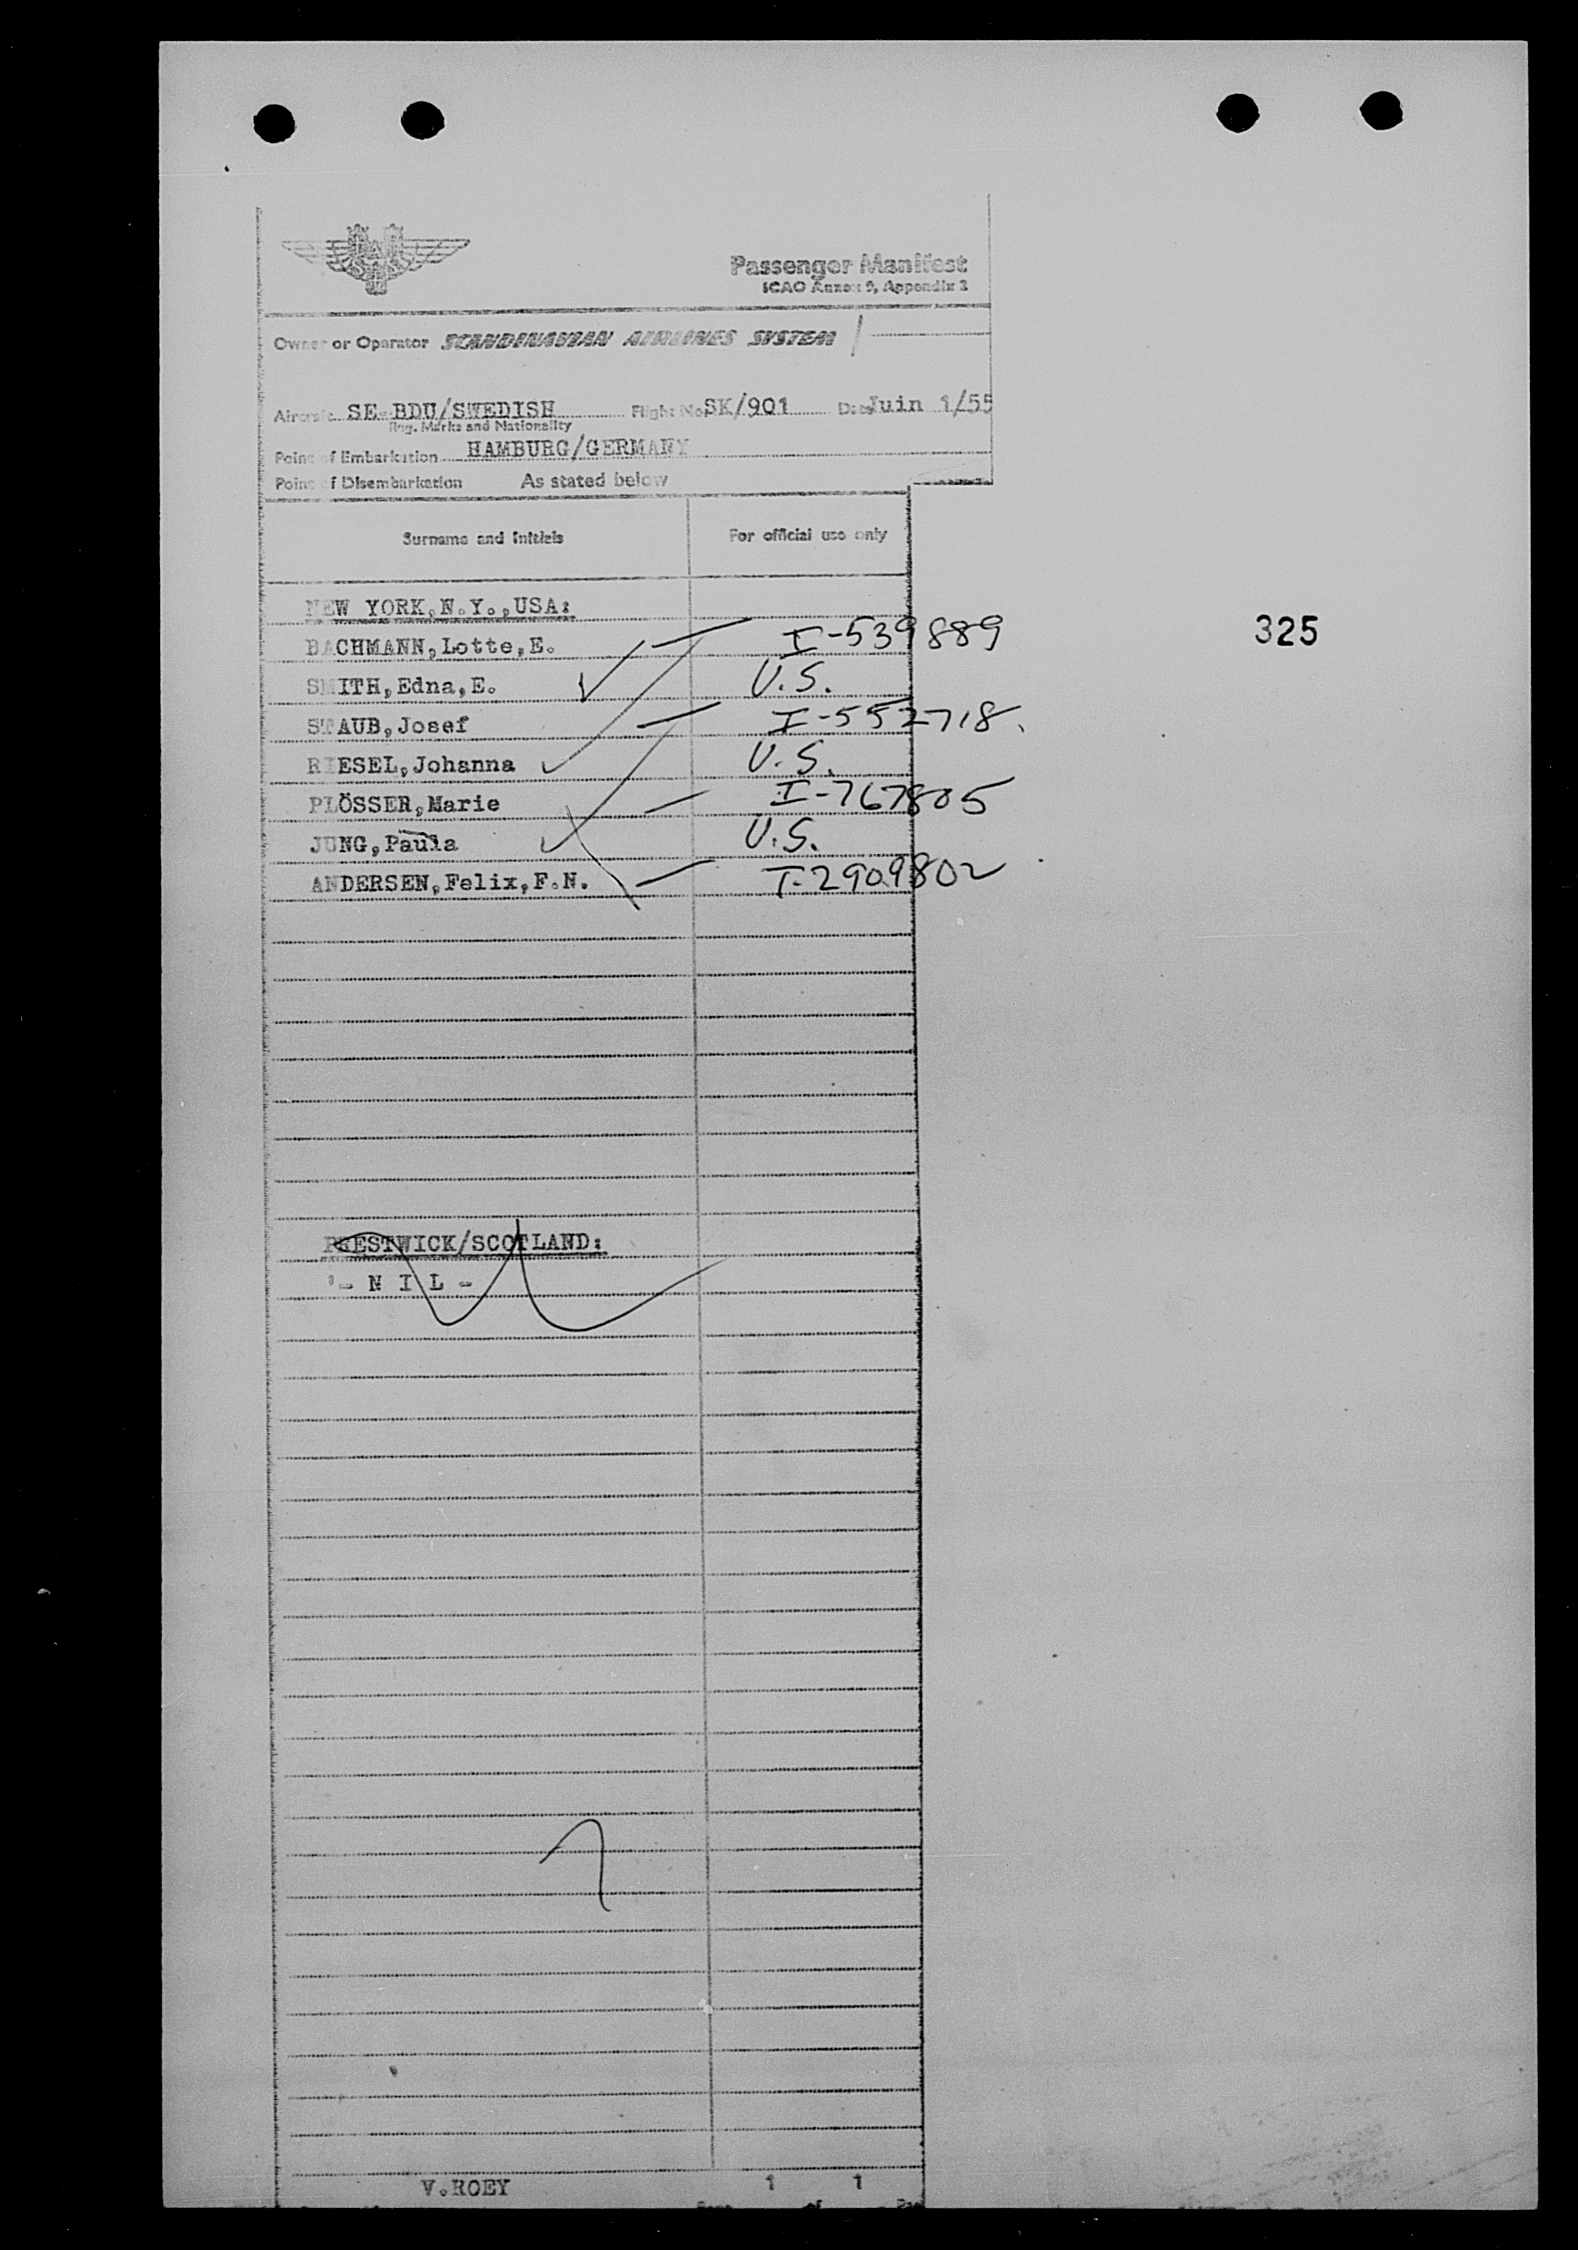 SAS
Passenger Manifest
ICAO Annex 9, Appendix 2
Owner or Operator SCANDINAVIAN AIRLINES SYSTEM
Aircraft SE-BDU/SWEDISH Flight No. SK/901 Date Juin 1/55
Reg. Marks and Nationality
Point of Embarkation HAMBURG/GERMANY
Point of Disembarkation As stated below
Surname and Initials For official use only
NEW YORK,N.Y.,USA:
BACHMANN,Lotte,E. I-539889 325
SMITH,Edna,E. U.S.
STAUB,Josef I-552718.
RIESEL,Johanna U.S.
PLÖSSER,Marie I-767805
JUNG,Paula U.S.
ANDERSEN,Felix,F.N. T-2909802
PRESTWICK/SCOTLAND:
- N I L -
V.ROEY 1 1
of